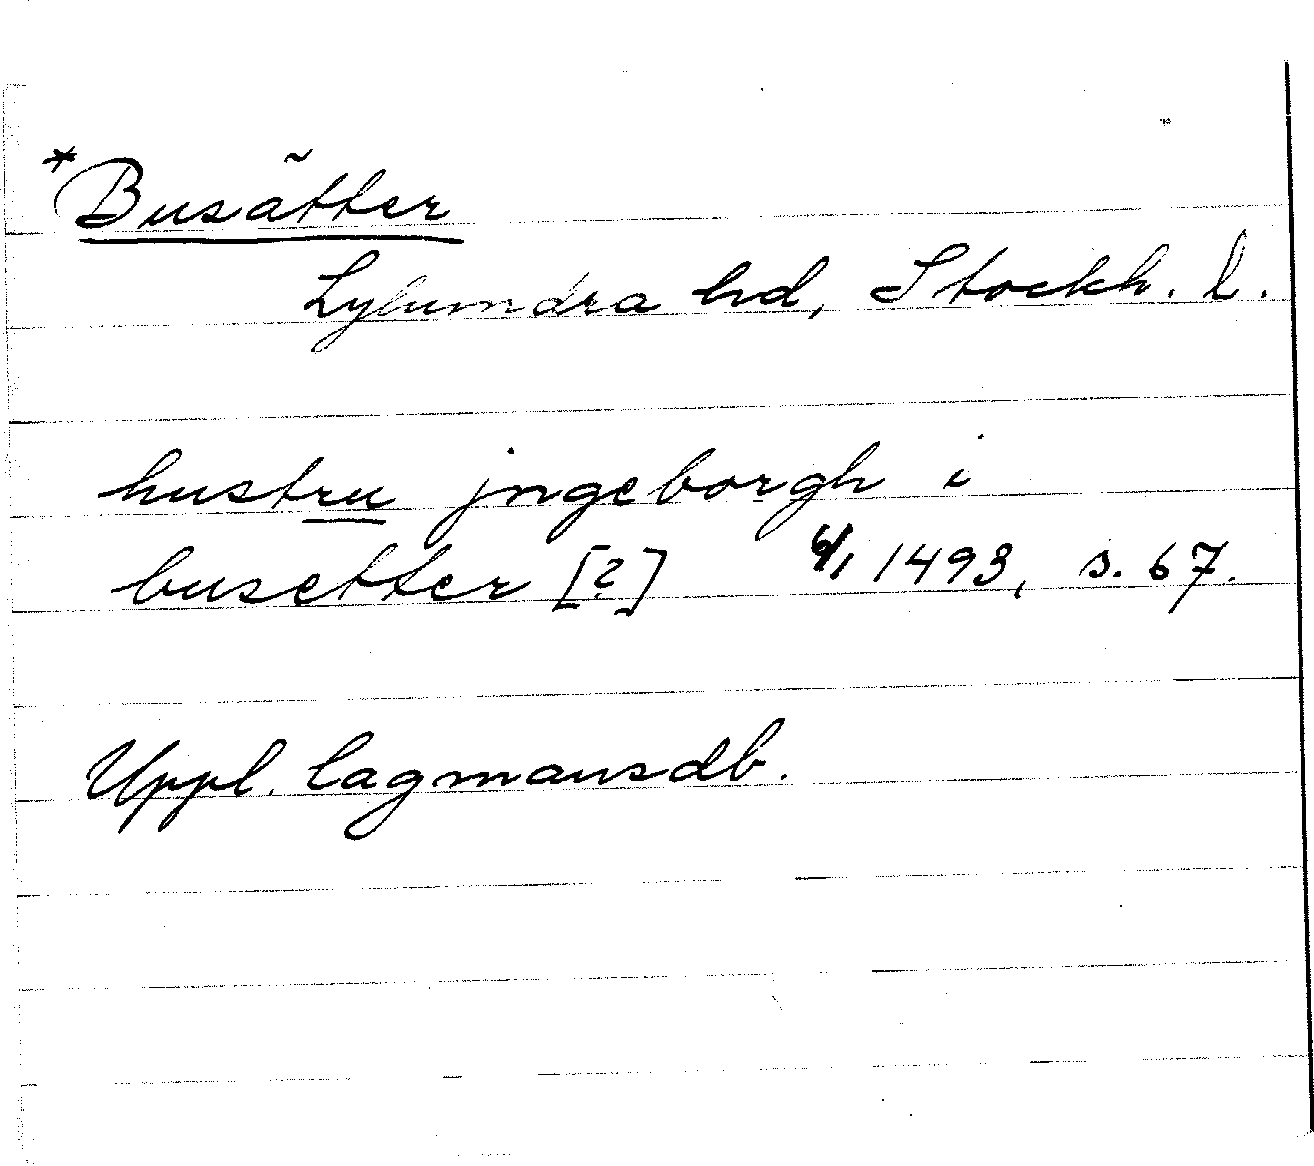 *Busätter
Lyhundra hd, Stockh. l.
hustru jngeborgh i
busetter [?] 6/1 1493, s. 67.
Uppl. lagmansdb.